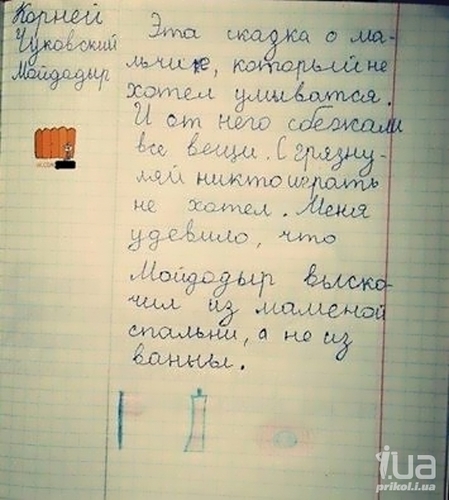 Корней
Чуковский
Мойдодыр
Эта скадка о ма-
льчике, который не
хотел умыватся.
И от него сбежали
все вещи. С грязну-
лей никто играть
не хотел. Меня
удевило, что
Мойдодыр выско-
чил из маменой
спальни, а не из
ванны.
i.ua
prikol.i.ua